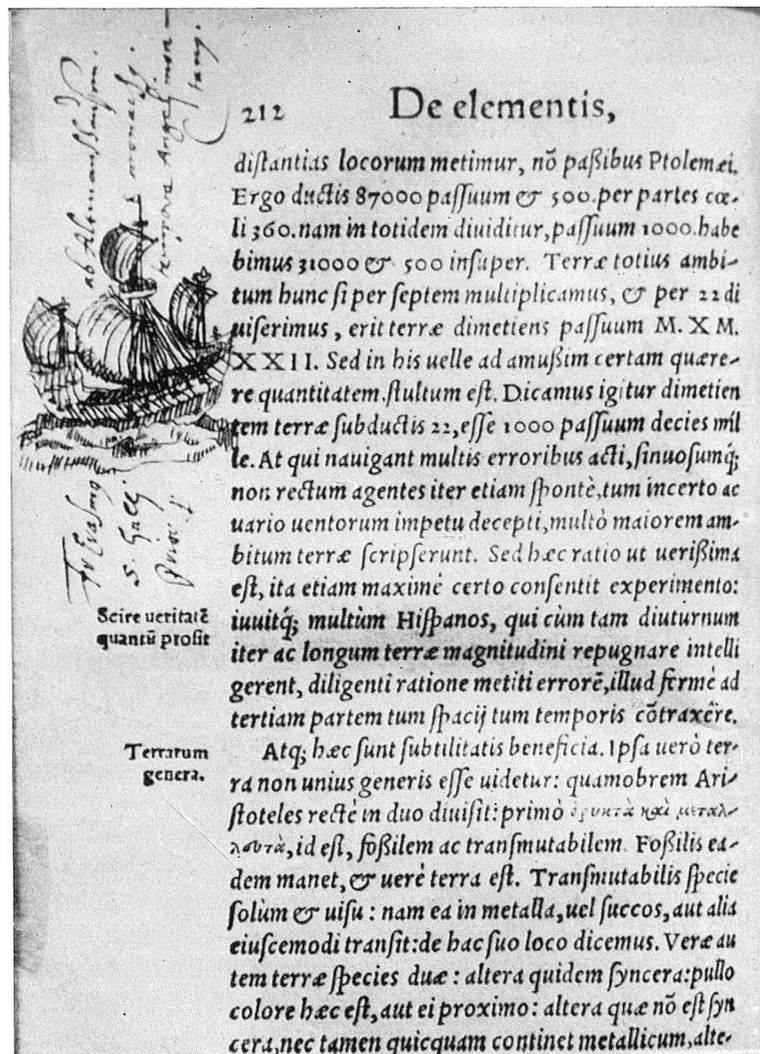 212 De elementis,
diſtantias locorum metimur, nõ paßibus Ptolemæi.
Ergo ductis 87000 paſſuum & 500. per partes cœ-
li 360. nam in totidem diuiditur, paſſuum 1000. habe
bimus 31000 & 500 inſuper. Terræ totius ambi-
tum hunc ſi per ſeptem multiplicamus, & per 22 di
uiſerimus, erit terræ dimetiens paſſuum M. X M.
X X I I. Sed in his uelle ad amußim certam quære-
re quantitatem, ſtultum eſt. Dicamus igitur dimetien
tem terræ ſubductis 22, eſſe 1000 paſſuum decies mil
le. At qui nauigant multis erroribus acti, ſinuoſumq́;
non rectum agentes iter etiam ſpontè, tum incerto ac
uario uentorum impetu decepti, multò maiorem am-
bitum terræ ſcripſerunt. Sed hæc ratio ut uerißima
eſt, ita etiam maximè certo conſentit experimento:
iuuitq́; multùm Hiſpanos, qui cùm tam diuturnum
iter ac longum terræ magnitudini repugnare intelli
gerent, diligenti ratione metiti errorẽ, illud fermè ad
tertiam partem tum ſpacij tum temporis cõtraxêre.
Atq; hæc ſunt ſubtilitatis beneficia. Ipſa uerò ter-
ra non unius generis eſſe uidetur: quamobrem Ari-
ſtoteles rectè in duo diuiſit: primò καὶ μεταλ-
λευτὰ, id eſt, foßilem ac tranſmutabilem. Foßilis ea-
dem manet, & uerè terra eſt. Tranſmutabilis ſpecie
ſolùm & uiſu: nam ea in metalla, uel ſuccos, aut alia
eiuſcemodi tranſit: de hac ſuo loco dicemus. Veræ au
tem terræ ſpecies duæ: altera quidem ſyncera: pullo
colore hæc eſt, aut ei proximo: altera quæ nõ eſt ſyn
cera, nec tamen quicquam continet metallicum, alte-
Scire ueritatẽ
quantũ proſit
Terrarum
genera.